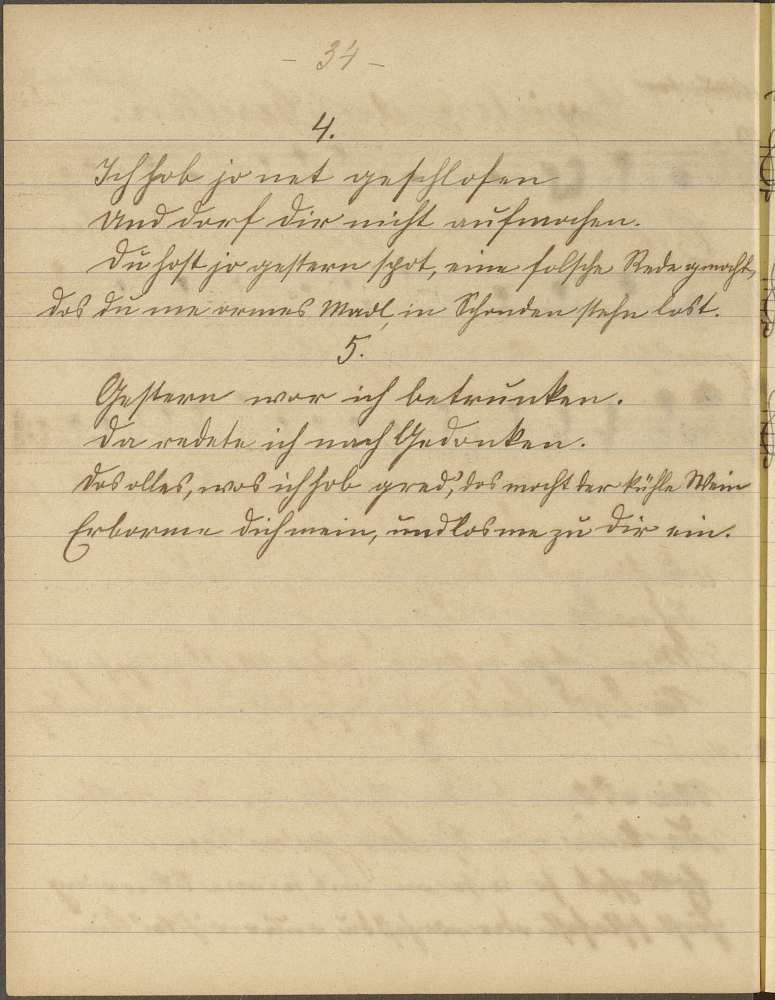 - 34 -
4.
Ich hob jo net geschlofen
Und dorf dir nicht aufmochen.
Du host jo gestern spot, eine folsche Rede gmocht,
dos du me ormes Madl, in Schonden stehn lost.
5.
Gestern wor ich betrunken.
Da redete ich nach Gedonken.
Dos olles, wos ich hob gred', dos mocht der kühle Wein
Erborme dich mein, und los me zu dir ein.